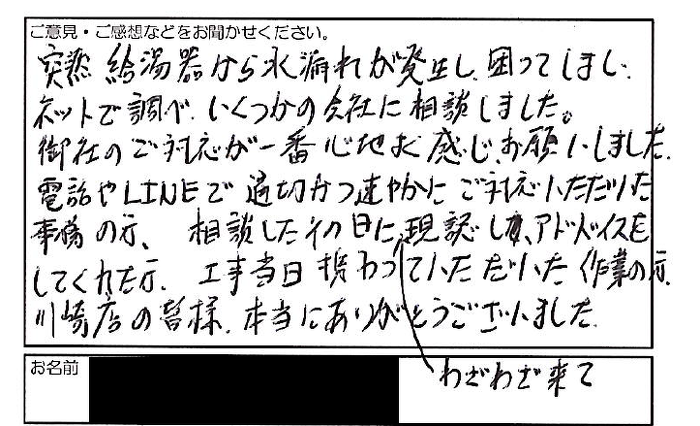 ご意見・ご感想などをお聞かせください。
突然 給湯器から水漏れが発生し、困ってしまい、
ネットで調べ、いくつかの会社に相談しました。
御社のご対応が一番心地よく感じ、お願いしました。
電話やLINEで適切かつ速やかにご対応いただいた
事務の方、相談したその日に現認し、アドバイスを
してくれた方、工事当日携わっていただいた作業の方、
川崎店の皆様、本当にありがとうございました。
わざわざ来て
お名前